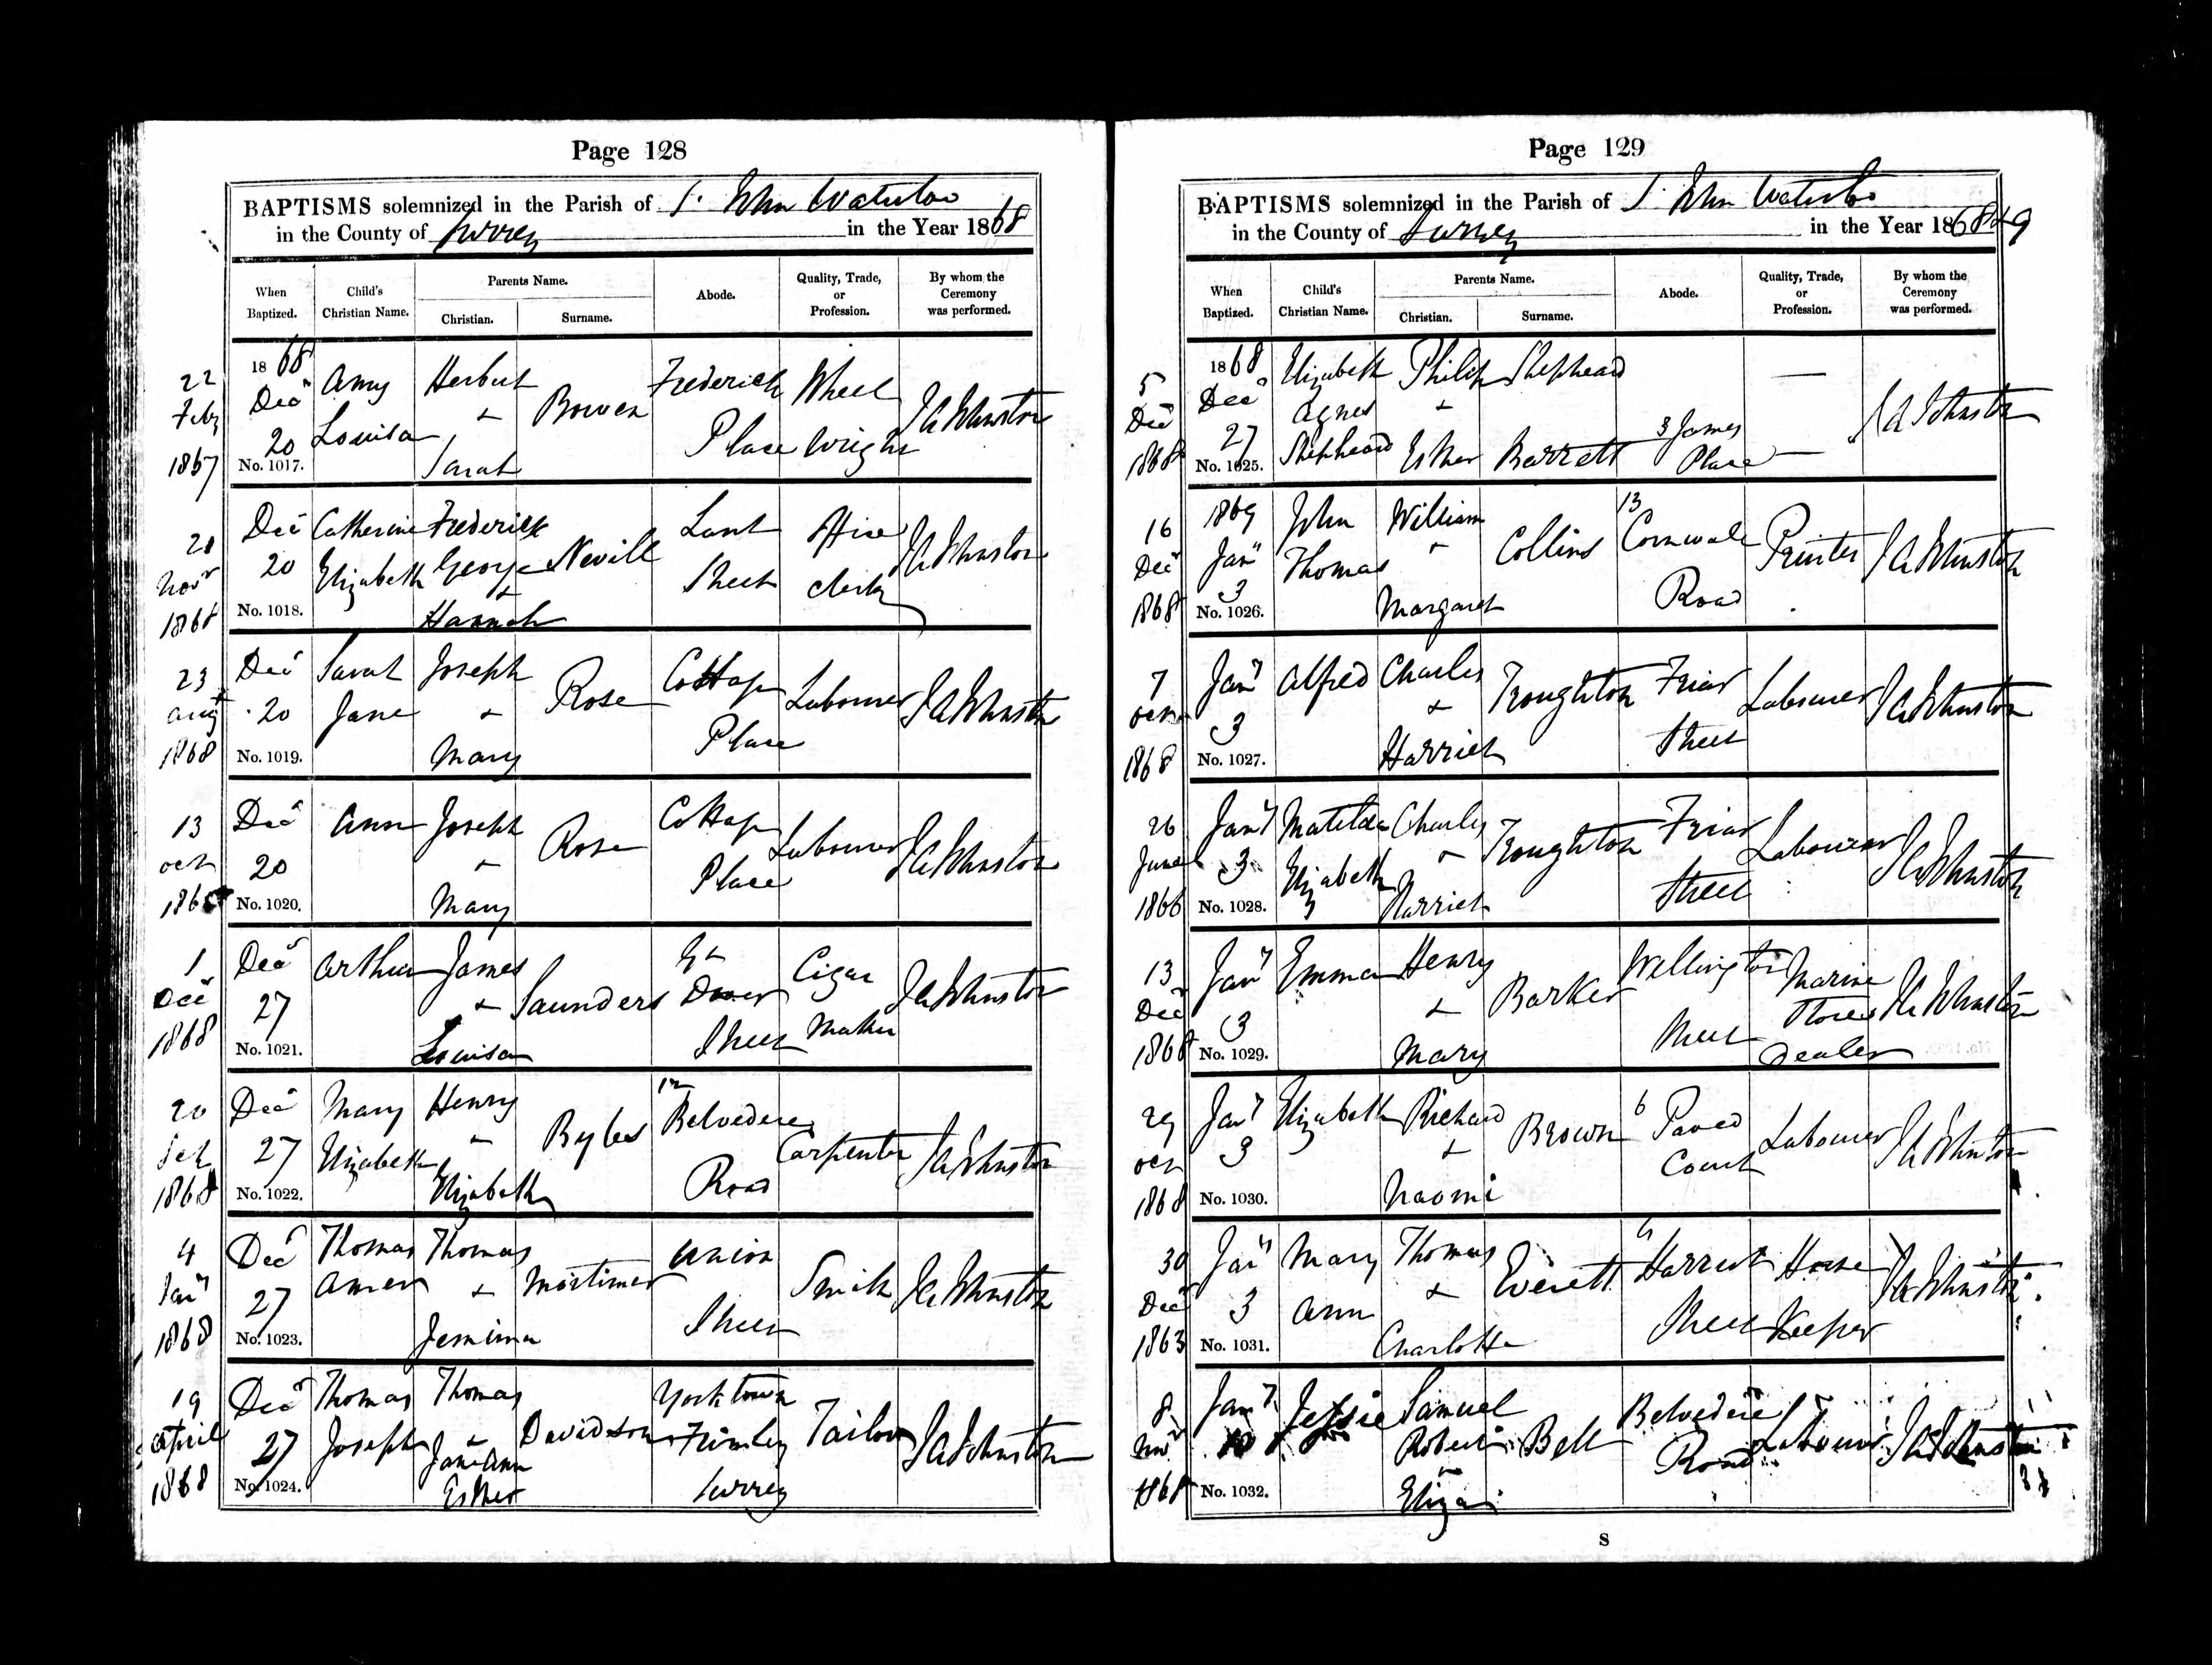 Page 128
BAPTISMS solemnized in the Parish of St John Waterloo
in the County of Surrey in the Year 1868
When Baptized.
Child's Christian Name.
Parents Name.
Christian.
Surname.
Abode.
Quality, Trade, or Profession.
By whom the Ceremony was performed.
22 Feby 1867
1868 Decr 20
No. 1017.
Amy Louisa
Herbert & Sarah
Bowen
Frederick Place
Wheel Wright
J A Johnston
Novr 1868
Decr 20
No. 1018.
Catherine Elizabeth
Frederick George & Hannah
Nevill
Lant Street
Office Clerk
J A Johnston
23 Augt 1868
Decr 20
No. 1019.
Sarah Jane
Joseph & Mary
Rose
Cottage Place
Labourer
J A Johnston
13 Oct
Decr 20
No. 1020.
Ann
Joseph & Mary
Rose
Cottage Place
Labourer
J A Johnston
1 Decr 1868
Decr 27
No. 1021.
Arthur
James & Louisa
Saunders
Street
Cigar Maker
J A Johnston
20 1868
Decr 27
No. 1022.
Mary Elizabeth
Henry & Elizabeth
Byles
12 Belvedere Road
Carpenter
J A Johnston
4 Jany 1868
Decr 27
No. 1023.
Thomas Amer
Thomas & Jemima
Mortimer
Union Street
Smith
J A Johnston
19 April 1868
Decr 27
No. 1024.
Thomas Joseph
Thomas & Jane Ann Esther
Davidson
York town Frimley Surrey
Tailor
J A Johnston
Page 129
BAPTISMS solemnized in the Parish of St John Waterloo
in the County of Surrey in the Year 1868 & 9
When Baptized.
Child's Christian Name.
Parents Name.
Christian.
Surname.
Abode.
Quality, Trade, or Profession.
By whom the Ceremony was performed.
5 Decr 1868
1868 Decr 27
No. 1025.
Elizabeth Agnes Shepheard
Philip Shepheard
& Esther Barrett
3 James Place
J A Johnston
16 Decr 1868
1869 Jany 3
No. 1026.
John Thomas
William & Margaret
Collins
13 Cornwall Road
Printer
J A Johnston
7 Oct 1868
Jany 3
No. 1027.
Alfred
Charles & Harriet
Troughton
Friar Street
Labourer
J A Johnston
26 June 1866
Jany 3
No. 1028.
Matilda Elizabeth
Charles & Harriet
Troughton
Friar Street
Labourer
J A Johnston
13 Decr 1868
Jany 3
No. 1029.
Emma
Henry & Mary
Barker
Wellington Street
Marine Stores Dealer
J A Johnston
29 Oct 1868
Jany 3
No. 1030.
Elizabeth
Richard & Naomi
Brown
6 Paved Court
Labourer
J A Johnston
30 Decr 1863
Jany 3
No. 1031.
Mary Ann
Thomas & Charlotte
Everett
Harriet Street
Horse Keeper
J A Johnston
8 Novr 1868
Jany
No. 1032.
Jessie
Samuel Robert & Eliza
Bell
Belvedere Road
Labourer
J A Johnston
S